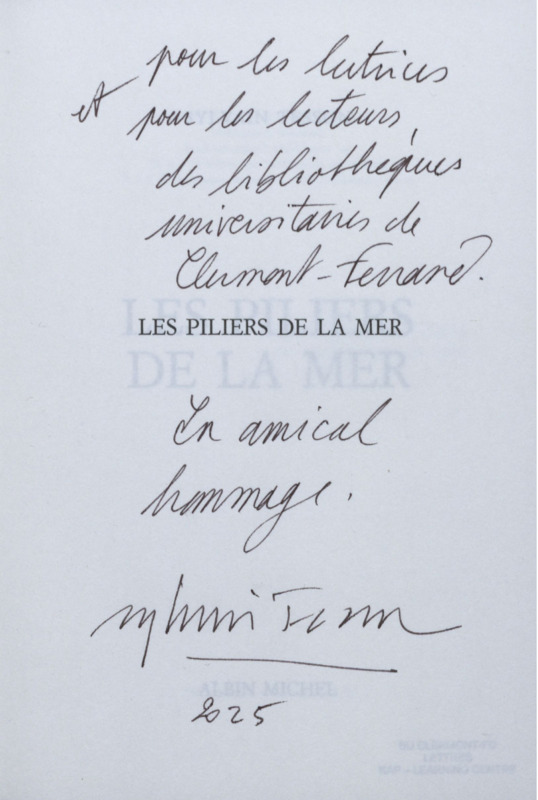 pour les lectrices
et pour les lecteurs,
des bibliothèques
universitaires de
Clermont-Ferrand.
LES PILIERS DE LA MER
En amical
hommage.
Sylvain Tesson
2025
LES PILIERS
DE LA MER
ALBIN MICHEL
LETTRES